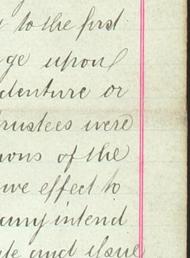 to the first
ge upon
denture or
rustees were
ions of the
ive effect to
any intend
ate and issue